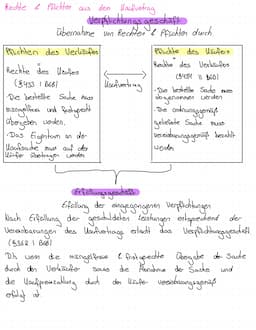 Rechte & Pflichten aus dem Kaufvertrag
Verpflichtungsgeschäft
Übernahme von Rechten & Pflichten durch
Pflichten des Verkäufers
Rechte des Käufers
(§433 I BGB)
- Die bestellte Sache muss
mangelfrei und fristgerecht
übergeben werden.
- Das Eigentum an der
Kaufsache muss auf den
Käufer übertragen werden
Kaufvertrag
Pflichten des Käufers
Rechte des Verkäufers
(§433 II BGB)
- Die bestellte Sache muss
abgenommen werden
- Die ordnungsgemäß
gelieferte Sache muss
vereinbarungsgemäß bezahlt
werden
Erfüllungsgeschäft
Erfüllung der eingegangenen Verpflichtungen
Nach Erfüllung der geschuldeten Leistungen entsprechend der
Vereinbarungen des Kaufvertrags erlischt das Verpflichtungsgeschäft
(§362 I BGB)
Dh wenn die mangelfreie & fristgerechte Übergabe der Sache
durch den Verkäufer sowie die Annahme der Sache und
die Kaufpreiszahlung durch den Käufer vereinbarungsgemäß
erfolgt ist.